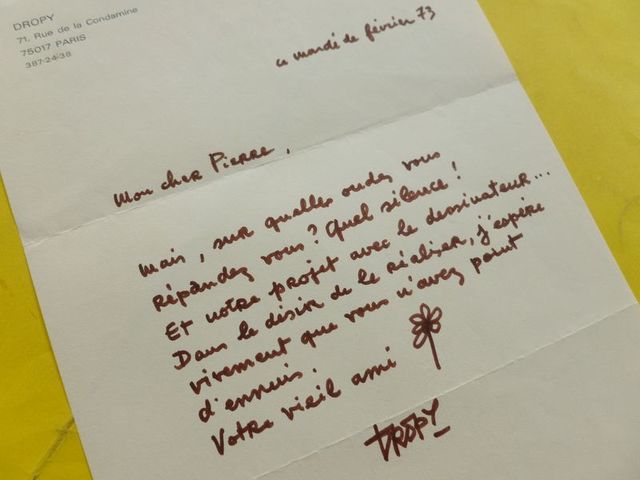 DROPY
71, Rue de la Condamine
75017 PARIS
387-24-38
ce mardi de février 73
Mon cher Pierre,
Mais, sur quelles ondes vous
répandez vous? Quel silence!
Et notre projet avec le dessinateur...
Dans le désir de le réaliser, j'espère
vivement que vous n'avez point
d'ennuis.
Votre vieil ami
DROPY